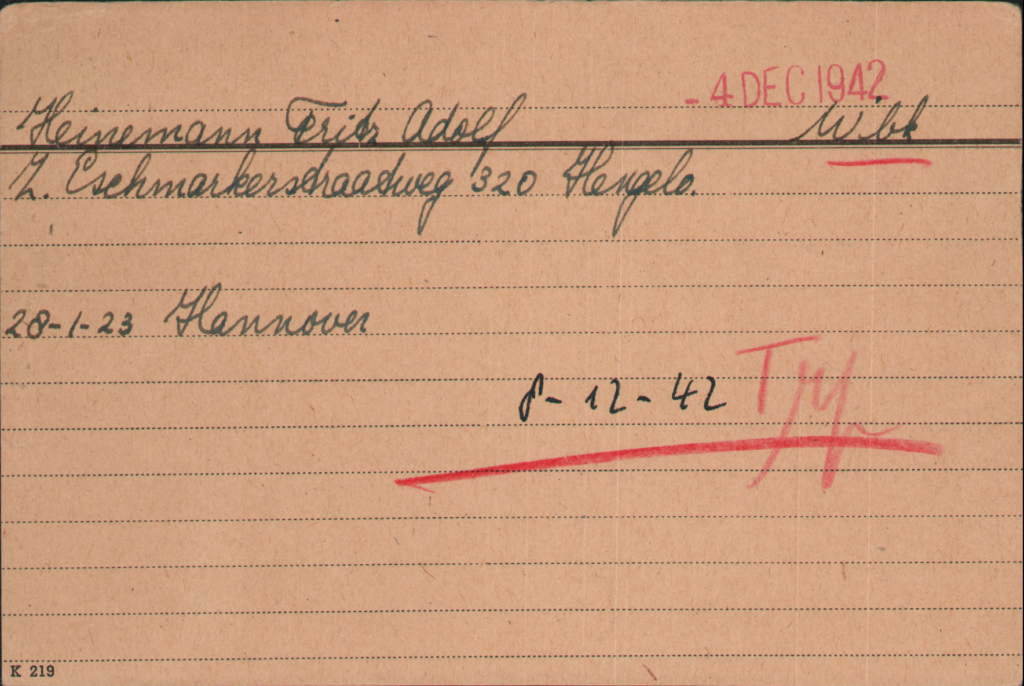 - 4 DEC 1942
Heinemann Fritz Adolf Wbk
Z. Eschmarkerstraatweg 320 Hengelo.
28-1-23 Hannover
8-12-42
K 219